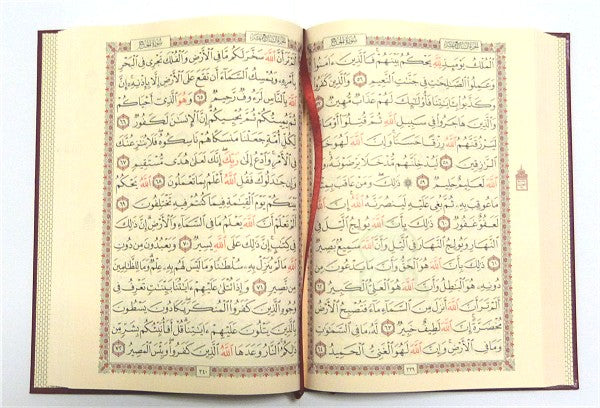 سُورَةُ الحَجِّ
الْمُلْكُ يَوْمَئِذٍ لِلَّهِ يَحْكُمُ بَيْنَهُمْ فَالَّذِينَ ءَامَنُوا
وَعَمِلُوا الصَّٰلِحَٰتِ فِي جَنَّٰتِ النَّعِيمِ ٥٦ وَالَّذِينَ كَفَرُوا
وَكَذَّبُوا بِـَٔايَٰتِنَا فَأُولَٰئِكَ لَهُمْ عَذَابٌ مُّهِينٌ ٥٧
وَالَّذِينَ هَاجَرُوا فِي سَبِيلِ اللَّهِ ثُمَّ قُتِلُوا أَوْ مَاتُوا
لَيَرْزُقَنَّهُمُ اللَّهُ رِزْقًا حَسَنًا وَإِنَّ اللَّهَ لَهُوَ خَيْرُ
الرَّٰزِقِينَ ٥٨ لَيُدْخِلَنَّهُم مُّدْخَلًا يَرْضَوْنَهُ وَإِنَّ
اللَّهَ لَعَلِيمٌ حَلِيمٌ ٥٩ ۞ ذَٰلِكَ وَمَنْ عَاقَبَ بِمِثْلِ
مَا عُوقِبَ بِهِ ثُمَّ بُغِيَ عَلَيْهِ لَيَنصُرَنَّهُ اللَّهُ إِنَّ اللَّهَ
لَعَفُوٌّ غَفُورٌ ٦٠ ذَٰلِكَ بِأَنَّ اللَّهَ يُولِجُ الَّيْلَ فِي
النَّهَارِ وَيُولِجُ النَّهَارَ فِي الَّيْلِ وَأَنَّ اللَّهَ سَمِيعٌ بَصِيرٌ
٦١ ذَٰلِكَ بِأَنَّ اللَّهَ هُوَ الْحَقُّ وَأَنَّ مَا يَدْعُونَ مِن
دُونِهِ هُوَ الْبَٰطِلُ وَأَنَّ اللَّهَ هُوَ الْعَلِيُّ الْكَبِيرُ ٦٢
أَلَمْ تَرَ أَنَّ اللَّهَ أَنزَلَ مِنَ السَّمَاءِ مَاءً فَتُصْبِحُ الْأَرْضُ
مُخْضَرَّةً إِنَّ اللَّهَ لَطِيفٌ خَبِيرٌ ٦٣ لَّهُ مَا فِي السَّمَٰوَٰتِ
وَمَا فِي الْأَرْضِ وَإِنَّ اللَّهَ لَهُوَ الْغَنِيُّ الْحَمِيدُ ٦٤
٣٣٩
سُورَةُ الحَجِّ
أَلَمْ تَرَ أَنَّ اللَّهَ سَخَّرَ لَكُم مَّا فِي الْأَرْضِ وَالْفُلْكَ تَجْرِي فِي الْبَحْرِ
بِأَمْرِهِ وَيُمْسِكُ السَّمَاءَ أَن تَقَعَ عَلَى الْأَرْضِ إِلَّا بِإِذْنِهِ إِنَّ
اللَّهَ بِالنَّاسِ لَرَءُوفٌ رَّحِيمٌ ٦٥ وَهُوَ الَّذِي أَحْيَاكُمْ
ثُمَّ يُمِيتُكُمْ ثُمَّ يُحْيِيكُمْ إِنَّ الْإِنسَٰنَ لَكَفُورٌ ٦٦
لِّكُلِّ أُمَّةٍ جَعَلْنَا مَنسَكًا هُمْ نَاسِكُوهُ فَلَا يُنَٰزِعُنَّكَ
فِي الْأَمْرِ وَادْعُ إِلَىٰ رَبِّكَ إِنَّكَ لَعَلَىٰ هُدًى مُّسْتَقِيمٍ ٦٧
وَإِن جَٰدَلُوكَ فَقُلِ اللَّهُ أَعْلَمُ بِمَا تَعْمَلُونَ ٦٨ اللَّهُ يَحْكُمُ
بَيْنَكُمْ يَوْمَ الْقِيَٰمَةِ فِيمَا كُنتُمْ فِيهِ تَخْتَلِفُونَ ٦٩
أَلَمْ تَعْلَمْ أَنَّ اللَّهَ يَعْلَمُ مَا فِي السَّمَاءِ وَالْأَرْضِ إِنَّ ذَٰلِكَ
فِي كِتَٰبٍ إِنَّ ذَٰلِكَ عَلَى اللَّهِ يَسِيرٌ ٧٠ وَيَعْبُدُونَ مِن دُونِ
اللَّهِ مَا لَمْ يُنَزِّلْ بِهِ سُلْطَٰنًا وَمَا لَيْسَ لَهُم بِهِ عِلْمٌ وَمَا لِلظَّٰلِمِينَ
مِن نَّصِيرٍ ٧١ وَإِذَا تُتْلَىٰ عَلَيْهِمْ ءَايَٰتُنَا بَيِّنَٰتٍ تَعْرِفُ فِي
وُجُوهِ الَّذِينَ كَفَرُوا الْمُنكَرَ يَكَادُونَ يَسْطُونَ
بِالَّذِينَ يَتْلُونَ عَلَيْهِمْ ءَايَٰتِنَا قُلْ أَفَأُنَبِّئُكُم بِشَرٍّ مِّن
ذَٰلِكُمُ النَّارُ وَعَدَهَا اللَّهُ الَّذِينَ كَفَرُوا وَبِئْسَ الْمَصِيرُ ٧٢
٣٤٠